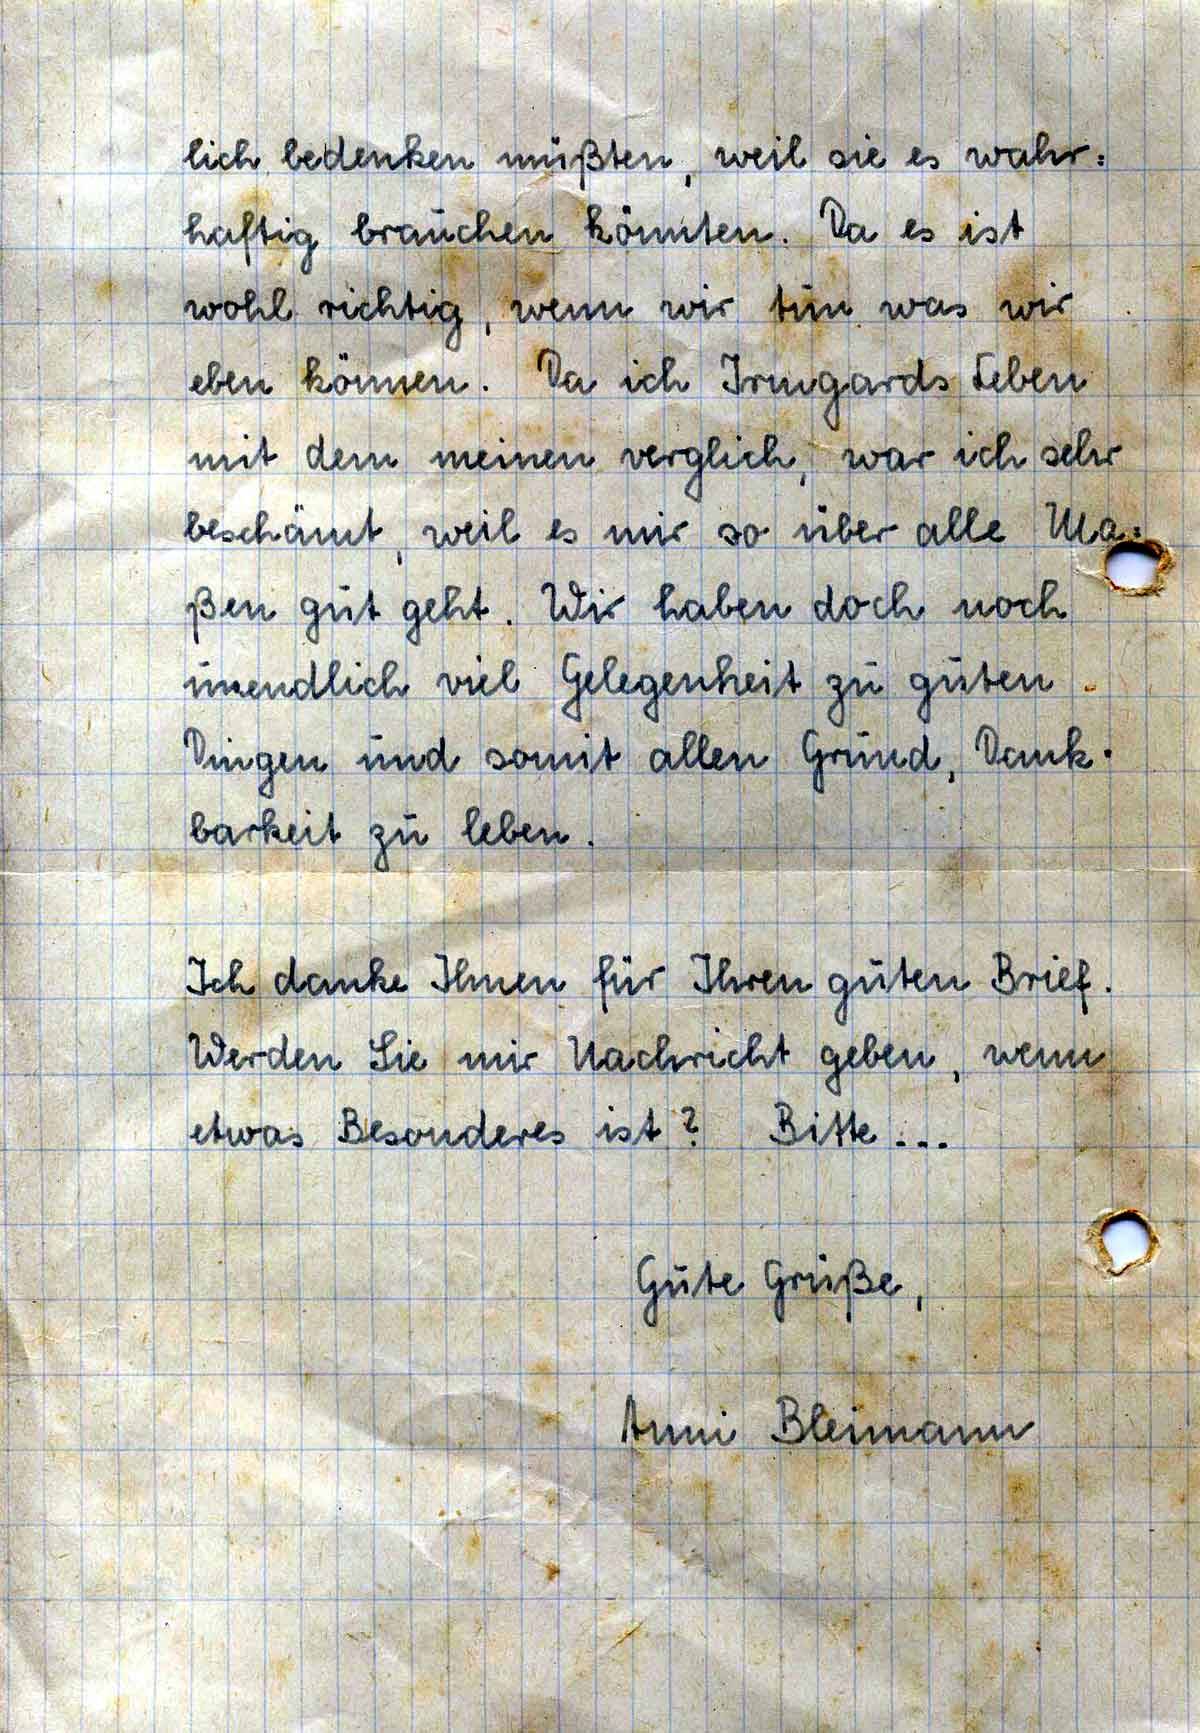 lich bedenken müßten, weil sie es wahr=
haftig brauchen könnten. Da es ist
wohl richtig, wenn wir tun was wir
eben können. Da ich Irmgards Leben
mit dem meinen verglich, war ich sehr
beschämt, weil es mir so über alle Ma=
ßen gut geht. Wir haben doch noch
unendlich viel Gelegenheit zu guten
Dingen und somit allen Grund, Dank-
barkeit zu leben.
Ich danke Ihnen für Ihren guten Brief.
Werden Sie mir Nachricht geben, wenn
etwas Besonderes ist? Bitte...
Gute Grüße,
Anni Bleimann